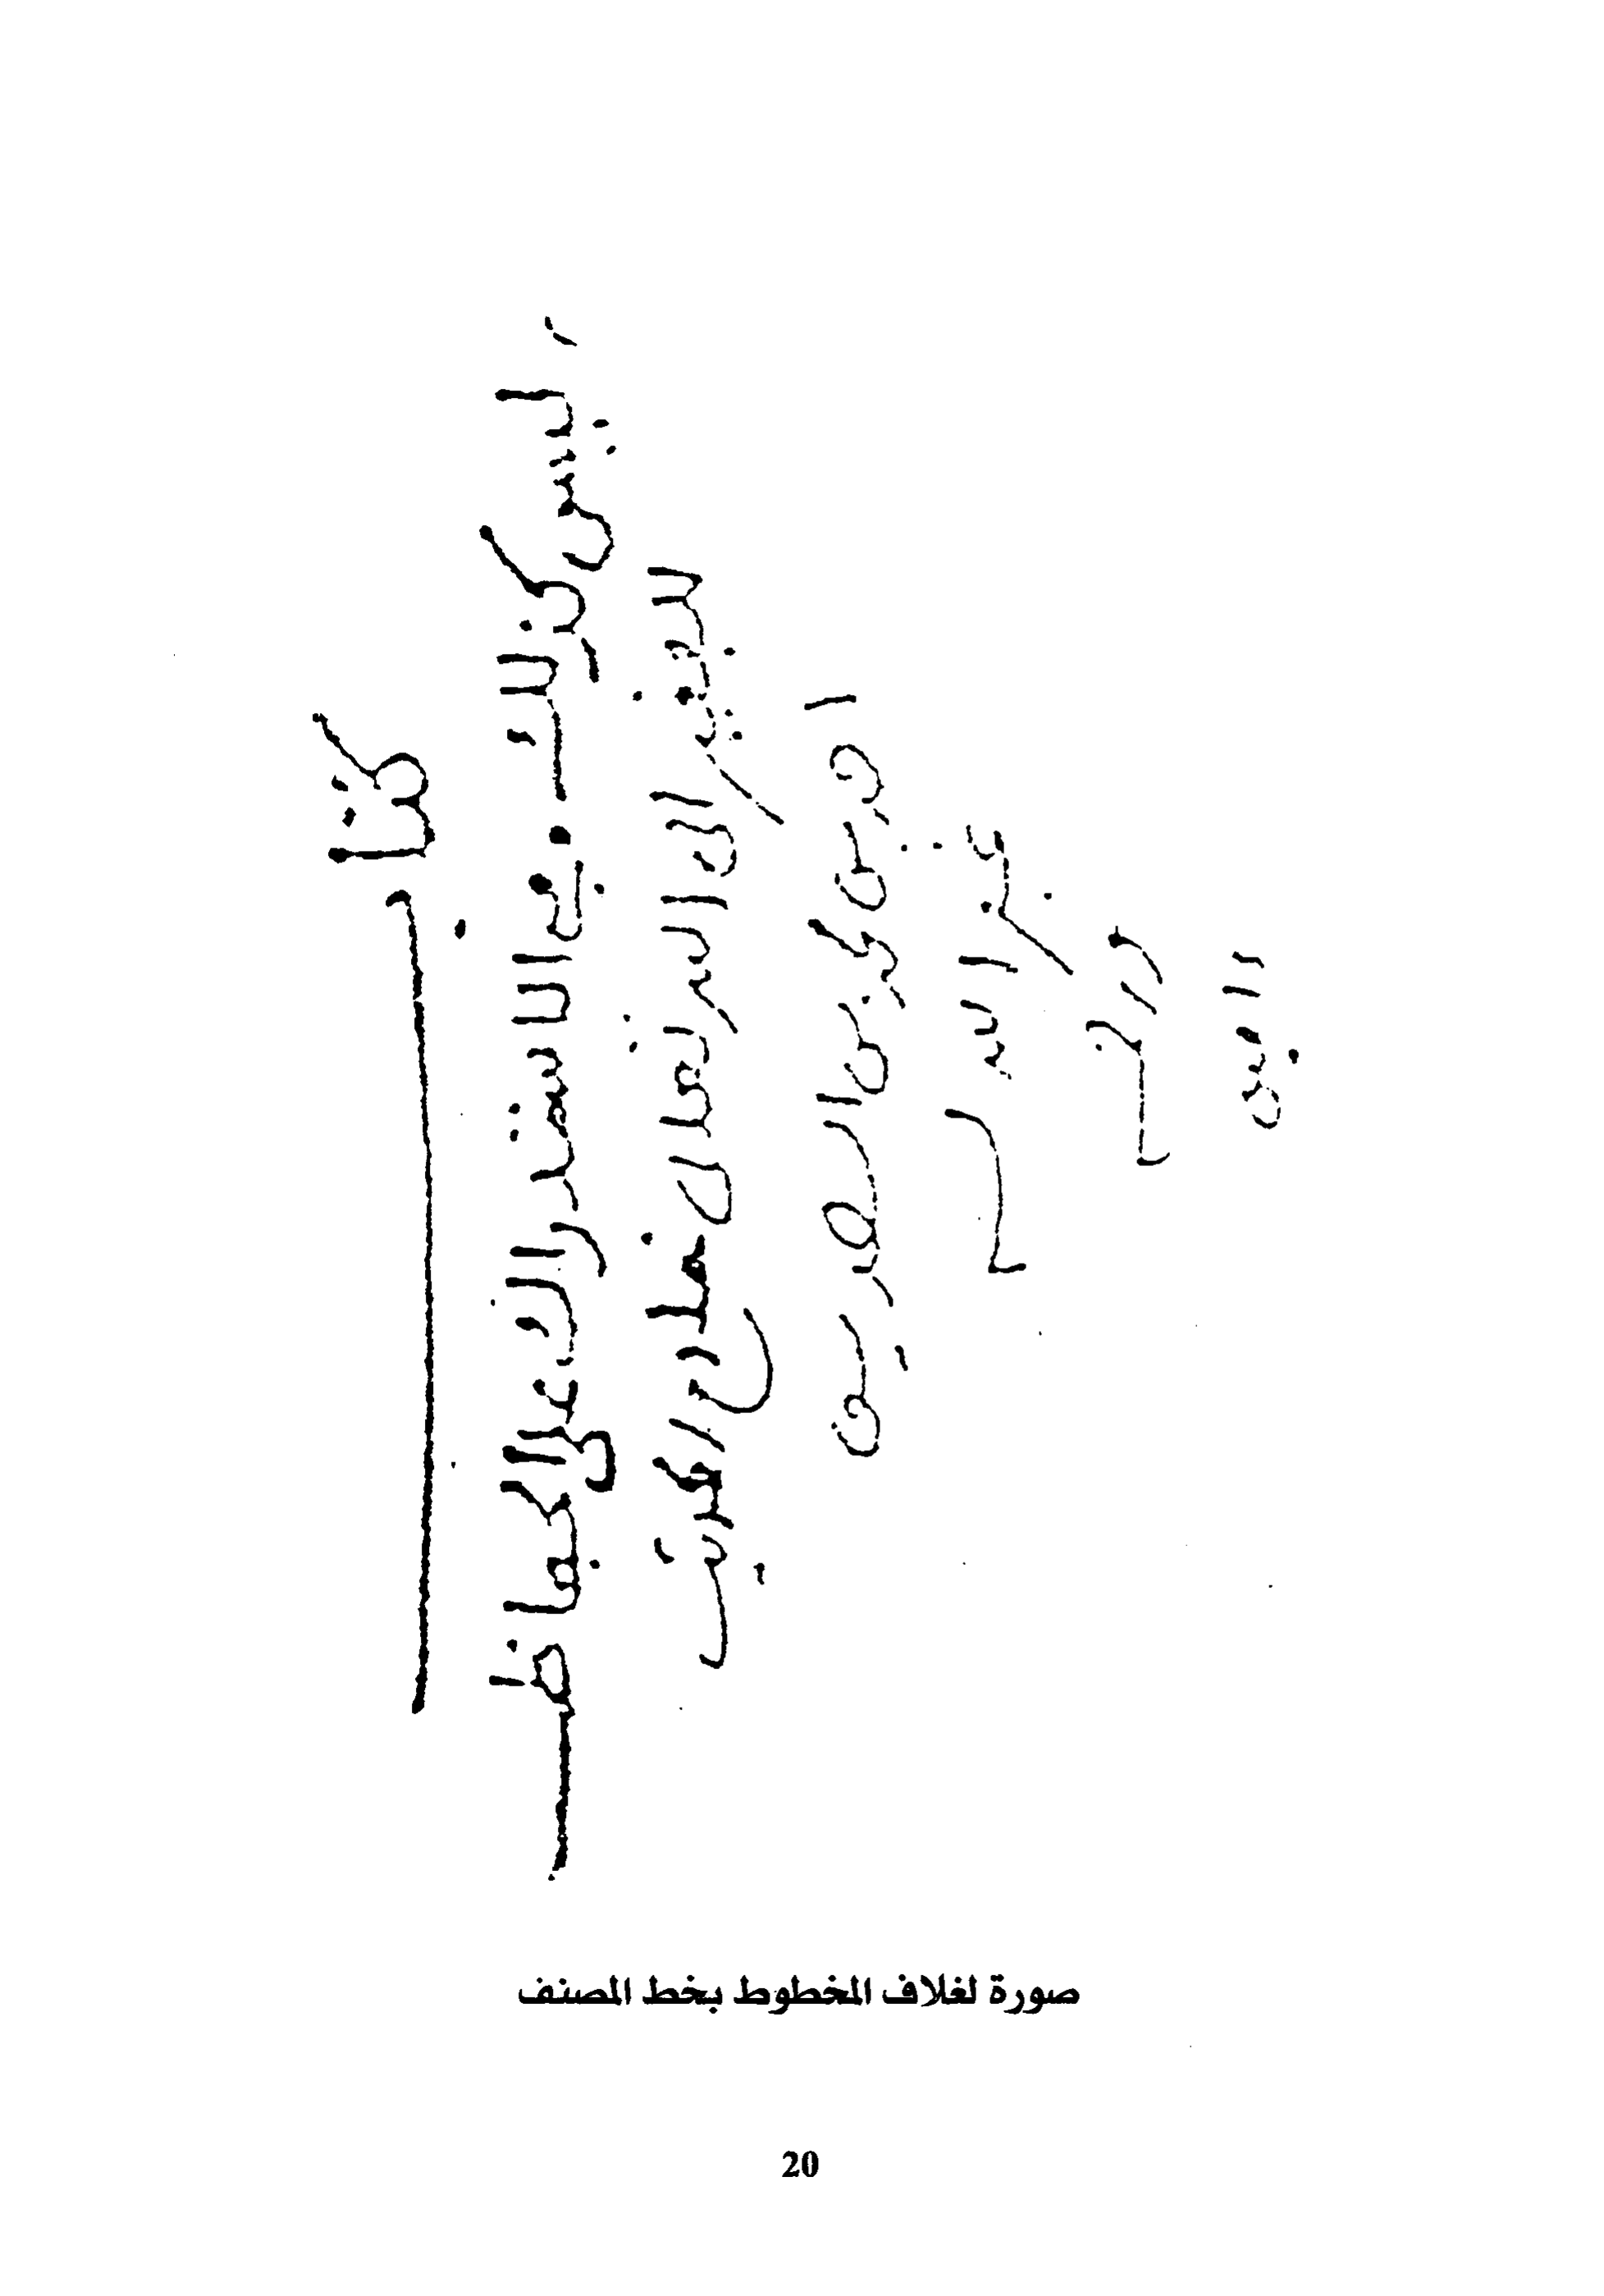 كتاب
ليس كذلك في الاستدراك على الحفاظ
للفقير الى الله تعالى خادم الحديث
احمد بن محمد بن الصديق
غفر الله له
امين
صورة لغلاف المخطوط بخط المصنف
20